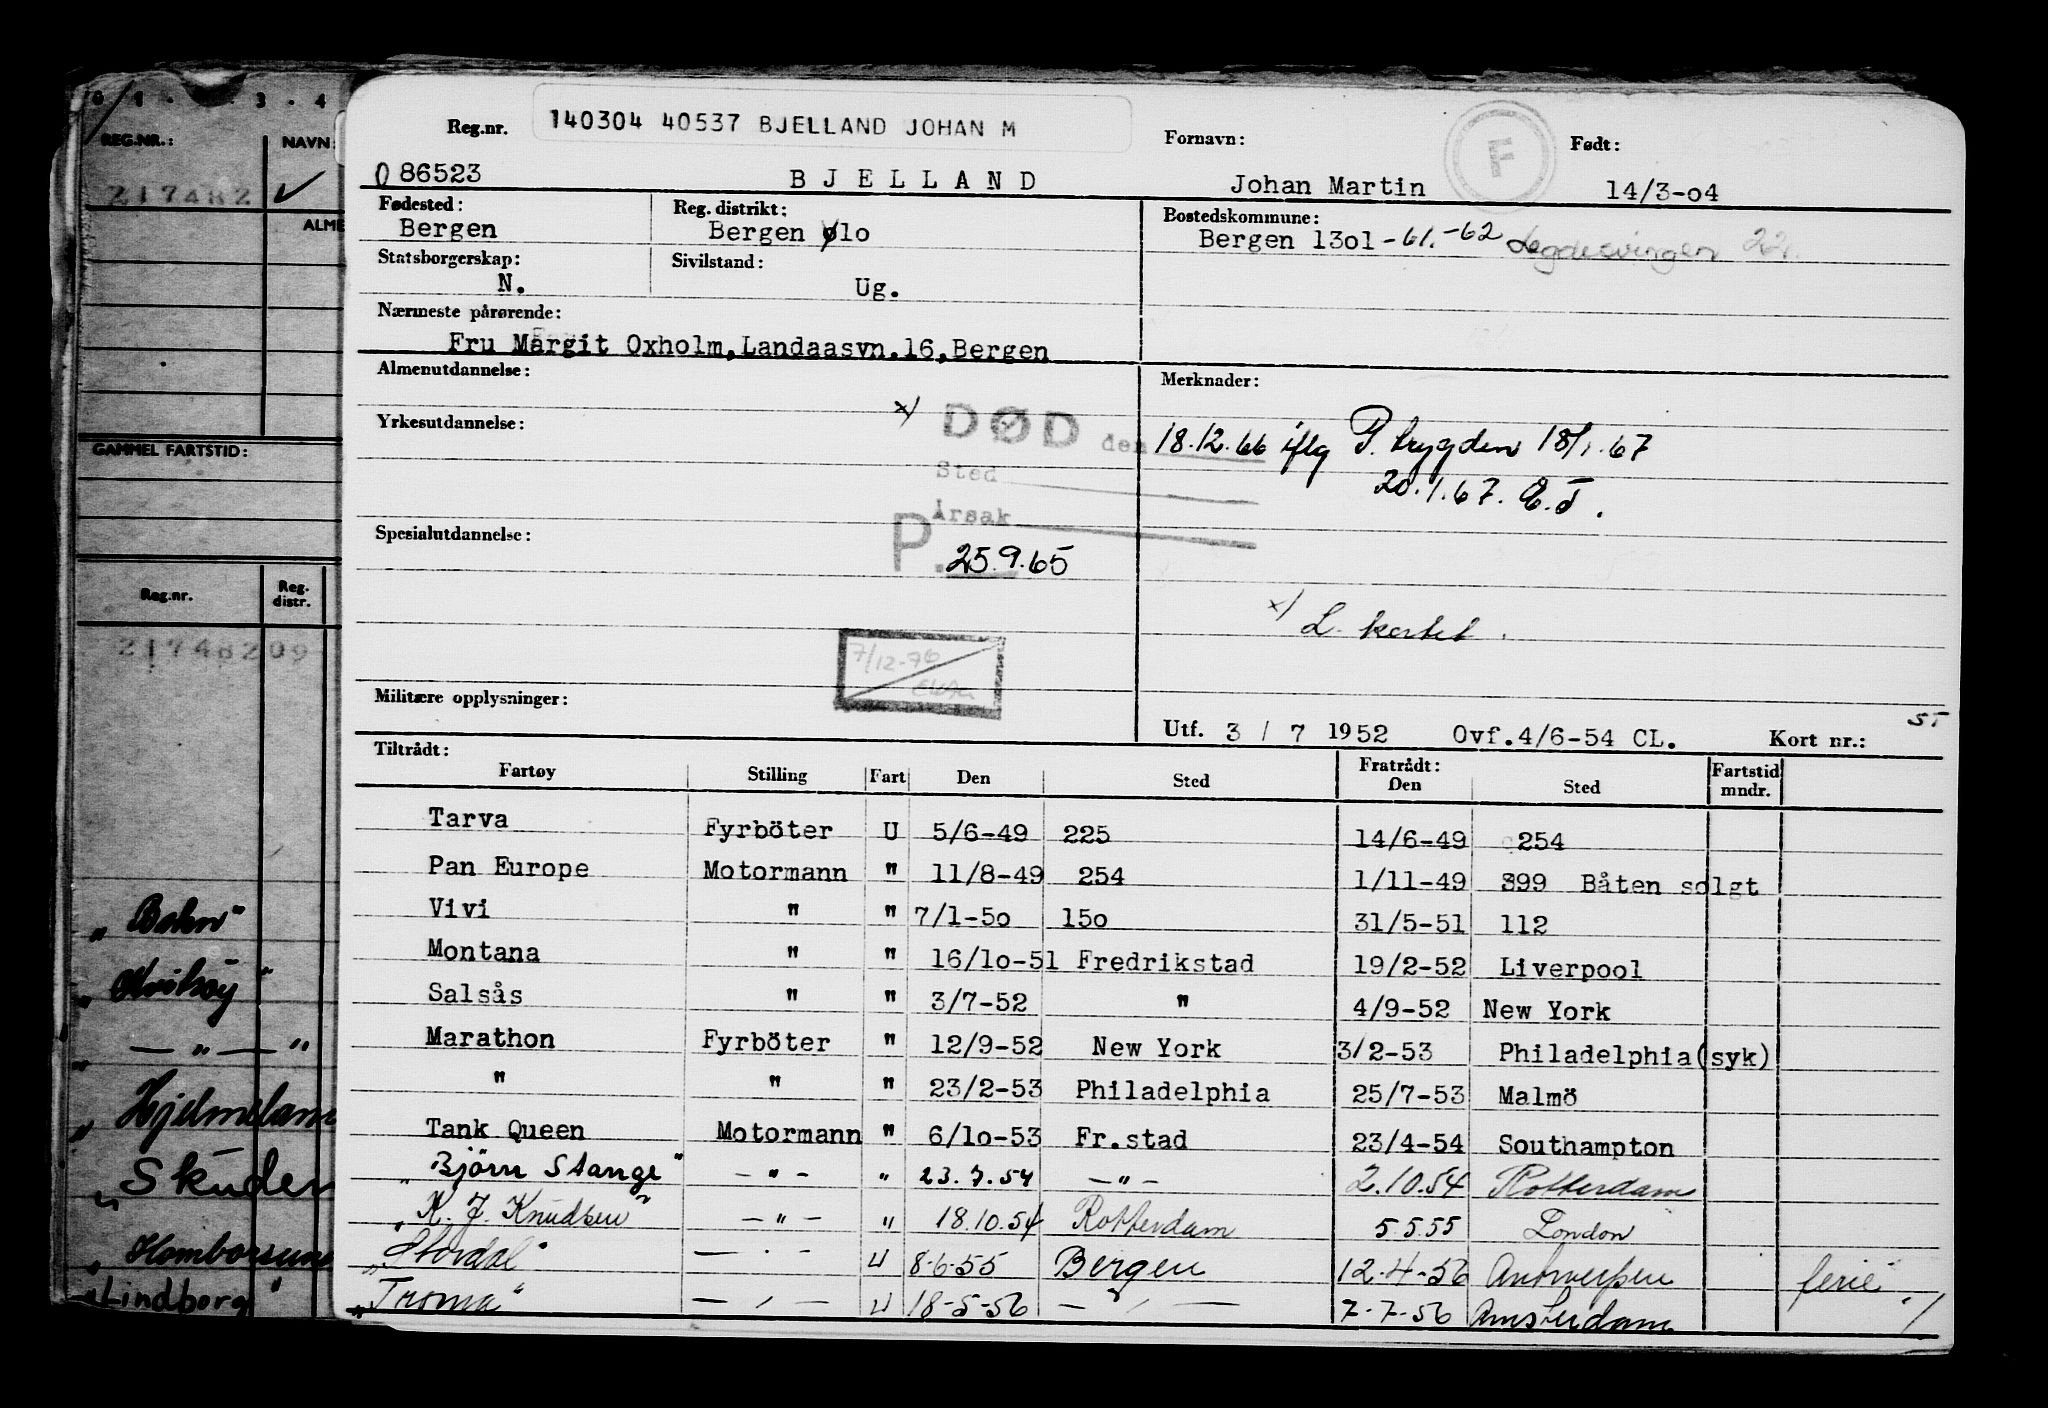 0 1 - 3 - 4
REG.NR.: NAVN:
217482 ✓
ALME
GAMMEL FARTSTID:
Reg.nr. Reg. distr.
21748209
„Bokn"
„ — " — "
„Hjelmelan
„Skuden
„Homborsun
„Lindborg"
Reg.nr. 140304 40537 BJELLAND JOHAN M Fornavn: F Født:
0 86523 BJELLAND Johan Martin 14/3-04
Fødested: Reg. distrikt: Bostedskommune:
Bergen Bergen ølo Bergen 13o1 -61.-62 22.
Statsborgerskap: Sivilstand:
N. Ug.
Nærmeste pårørende:
Fru Margit Oxholm,Landaasvn.16,Bergen
Almenutdannelse: Merknader:
x/ DØD den 18.12.66 iflg P. trygden 18/1.67
Yrkesutdannelse:
Sted 20.1.67. E.T.
Årsak
Spesialutdannelse: P. 25.9.65
x/ L. kortet.
7/12-76
Militære opplysninger:
Utf. 3 / 7 1952 Ovf.4/6-54 CL. Kort nr.: ST
Tiltrådt: Fratrådt:
Fartøy Stilling Fart Den Sted Den Sted Fartstid mndr.
Tarva Fyrböter U 5/6-49 225 14/6-49 254
Pan Europe Motormann " 11/8-49 254 1/11-49 399 Båten solgt
Vivi " " 7/1-5o 15o 31/5-51 112
Montana " " 16/1o-51 Fredrikstad 19/2-52 Liverpool
Salsås " " 3/7-52 " 4/9-52 New York
Marathon Fyrböter " 12/9-52 New York 3/2-53 Philadelphia(syk)
" " " 23/2-53 Philadelphia 25/7-53 Malmö
Tank Queen Motormann " 6/1o-53 Fr.stad 23/4-54 Southampton
„Björn Stange" — " — " 23.7.54 — " — 2.10.54 Rotterdam
„K. J. Knudsen" — " — " 18.10.54 Rotterdam 5 5 55 London
„Stordal" — " — U 8-6-55 Bergen 12-4-56 Antwerpen ferie.
„Troma" — " — U 18-5-56 — " — 7-7-56 Amsterdam ./